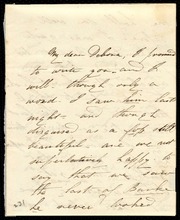 My dear Debora, I promised
to write you and I
will though only a
word. I saw him last
night and though
disguised as a fop still
beautiful. are we not
superlatively happy to
say that we saw
the last of Burke
he never looked